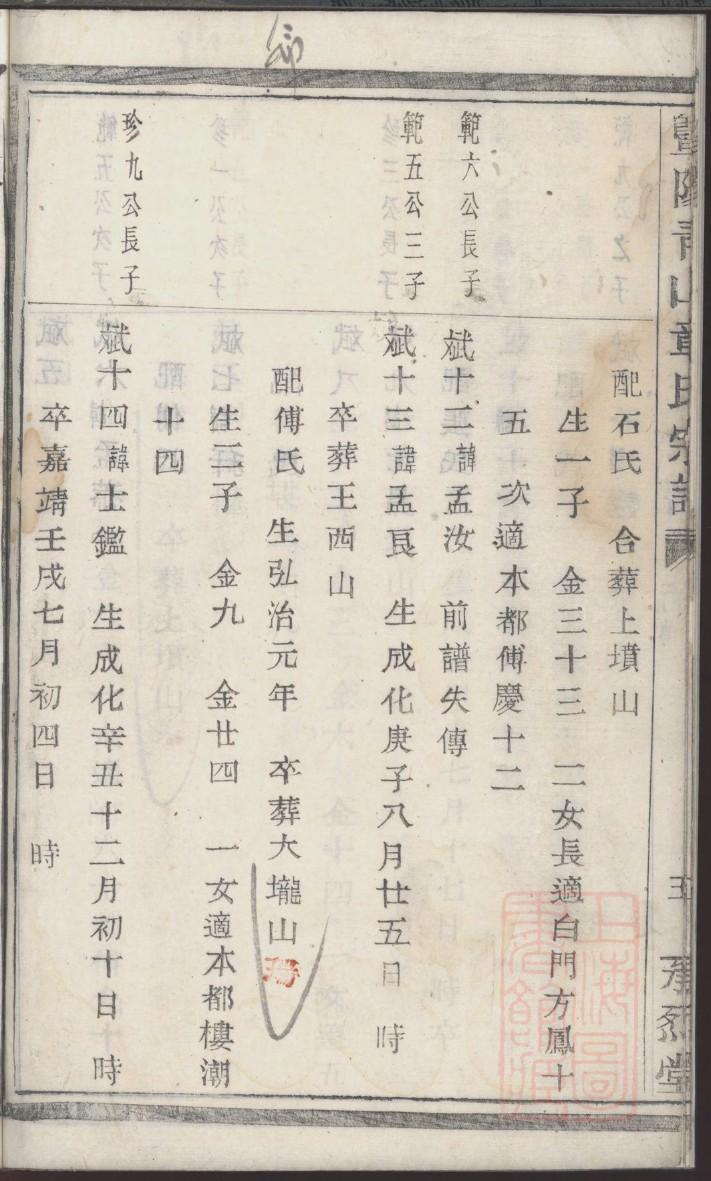 暨陽青山章氏宗譜
五
承烈堂
配石氏 合葬上墳山
生一子 金三十三 二女長適白門方鳳十
五次適本都傅慶十二
範六公長子
斌十二諱孟汝 前譜失傳
範五公三子
斌十三諱孟良 生成化庚子八月廿五日 時
卒葬王西山
配傅氏 生弘治元年 卒葬大壠山
生二子 金九 金廿四 一女適本都樓潮
十四
珍九公長子
斌十四諱士鑑 生成化辛丑十二月初十日 時
卒嘉靖壬戌七月初四日 時
上海圖書館藏